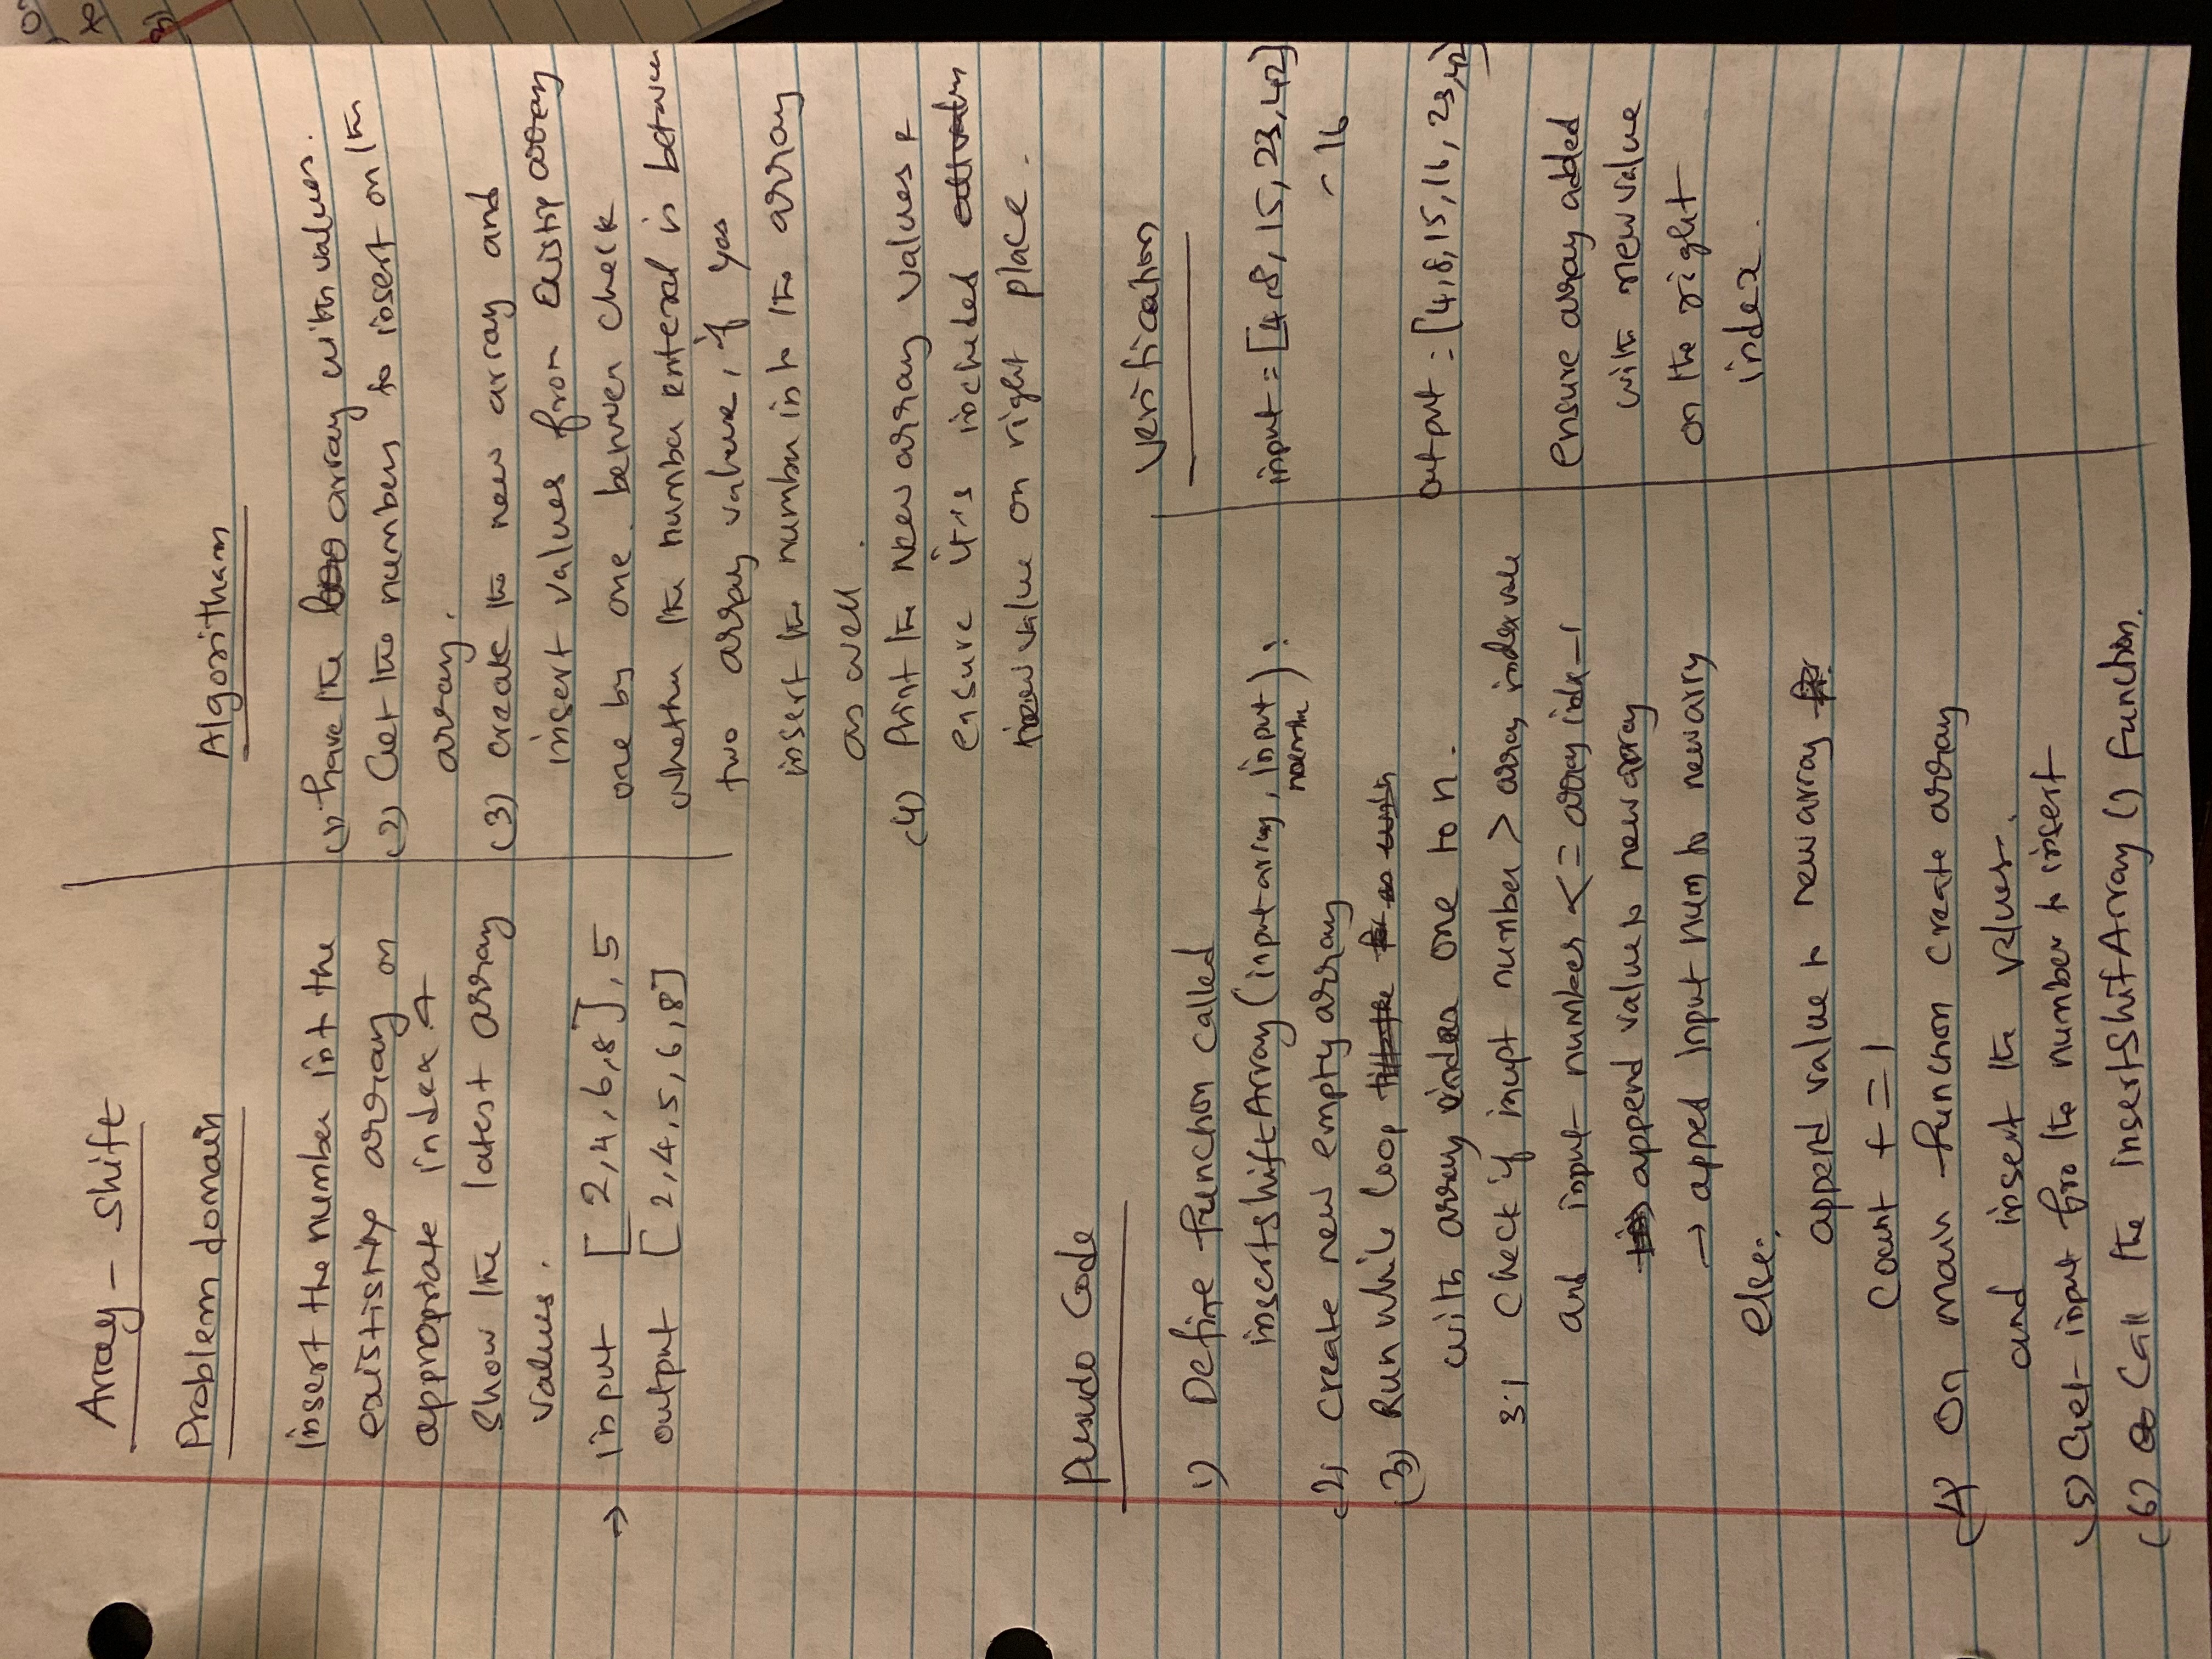 Array - Shift
Problem domain
insert the number int the
existising array on
appropriate index &
show the latest array
values.
→ input [2,4,6,8], 5
output [2,4,5,6,8]
Algoritham
(1) have the array with values.
(2) Get the numbers to insert on the
array.
(3) create the new array and
insert values from Existing array
one by one. between check
whether the number entered is between
two array value, if yes
insert the number into the array
as well.
(4) Print the New array values &
ensure it's included
new value on right place.
Pusudo Code
1) Define function called
insertshiftArray (input array, input
):
(2) create new empty array
(3) Run while loop
with array index one to n.
3.1 Check if inupt number > array index value
and input number <= array indx-1
append value to new array
→ apped input num to newarry
else:
append value to new array
Count += 1
(4) On main function create array
and insert the values.
(5) Get input fro the number to insert
(6) Call the insertShifArray () function.
Verification
input = [4,8, 15, 23, 42]
- 16
output = [4,8,15,16, 23,42]
ensure array added
with new value
on the right
index.